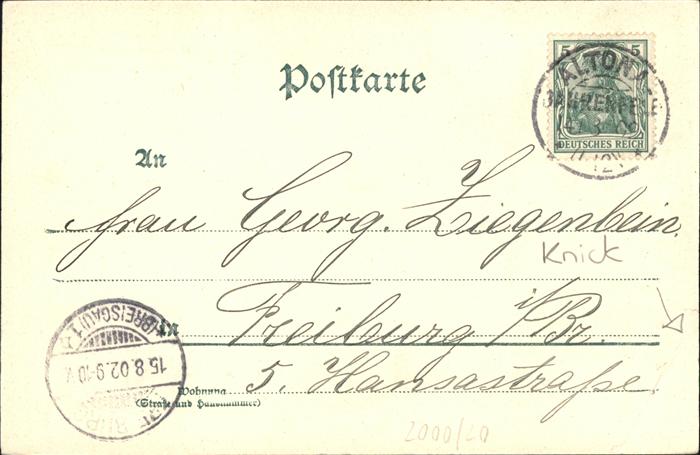 Postkarte
5 5
DEUTSCHES REICH
ALTONA
BAHRENFELD
An
Frau Georg. Ziegenbein.
Knick
In Freiburg i/Br.
(BREISGAU) 1
15.8.02.9-10V.
Wohnung
(Straße und Hausnummer)
5. Hansastraße.
2000/20